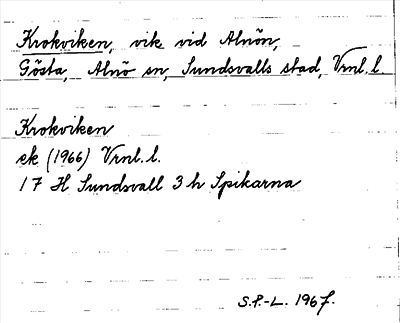 Krokviken, vik vid Alnön,
Gösta, Alnö sn, Sundsvalls stad, Vrnl. l.
Krokviken
ek (1966) Vrnl. l.
17 H Sundsvall 3 h Spikarna
S.P.-L. 1967.